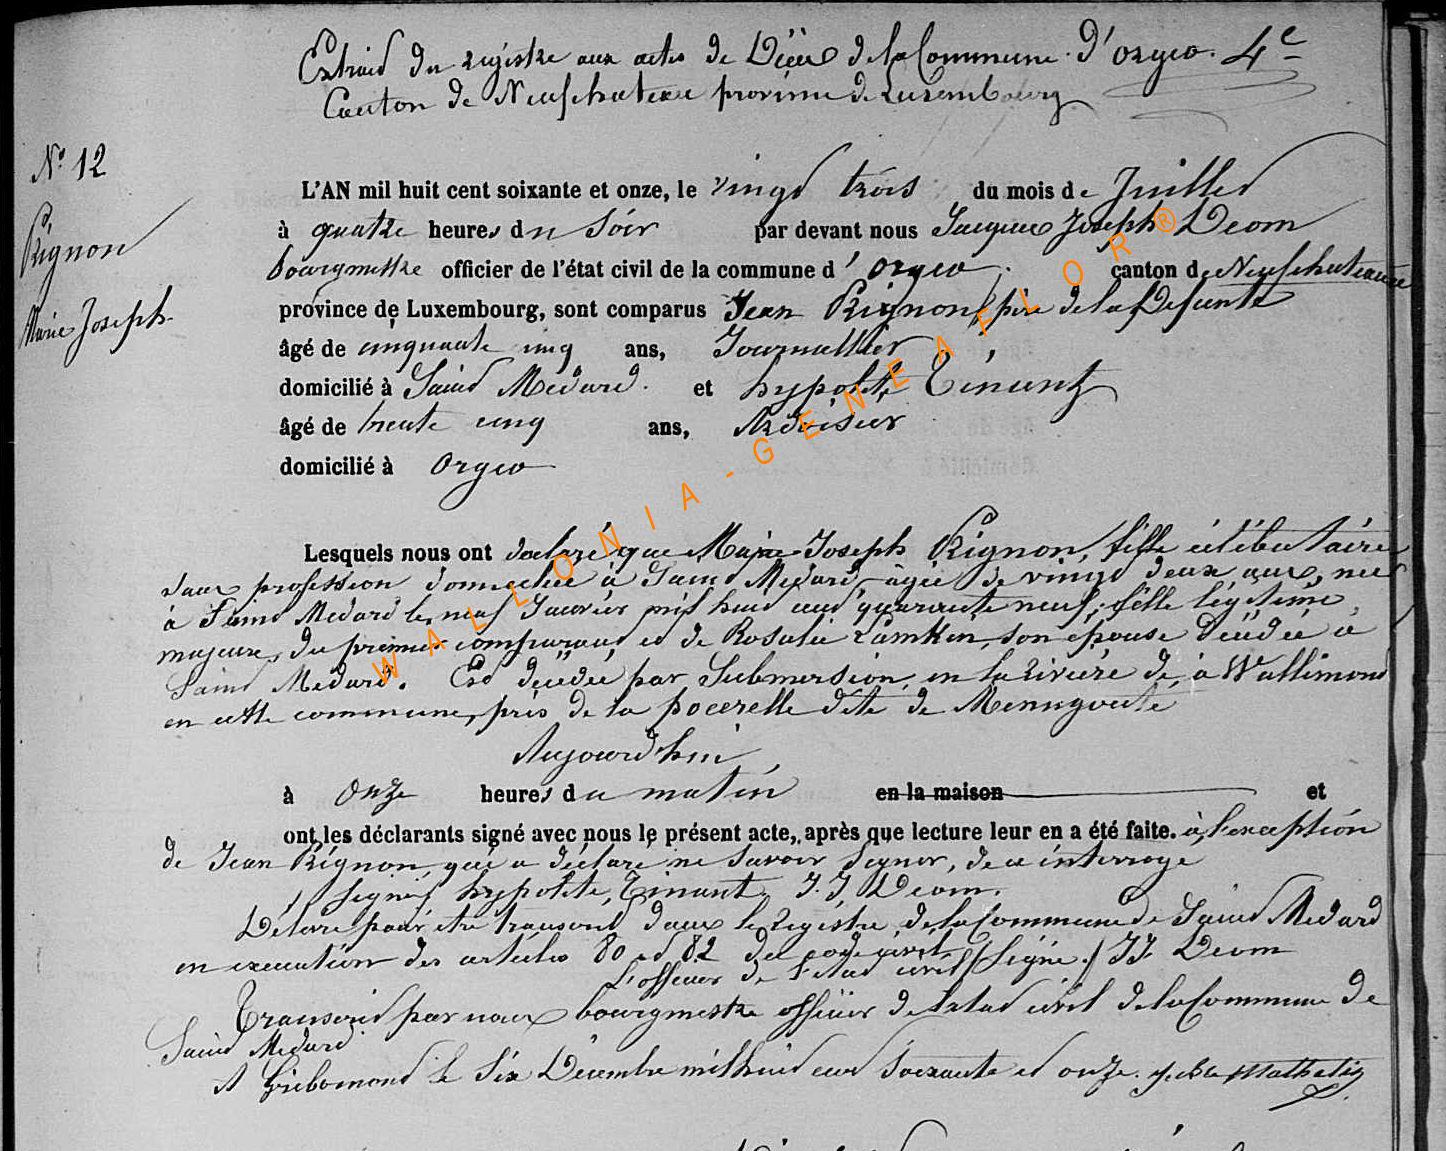 Extrait du registre aux actes de Décès de la Commune d'Orgeo. 4e
Canton de Neufchateau province de Luxembourg
N° 12
Pignon
Marie Joseph
L'AN mil huit cent soixante et onze, le vingt trois du mois de Juillet
à quatre heures du Soir par devant nous Jacques Joseph Deom
bourgmestre officier de l'état civil de la commune d'Orgeo. canton de Neufchateau
province de Luxembourg, sont comparus Jean Pignon, père de la Defunte
âgé de cinquante cinq ans, Journallier
domicilié à Saint Médard. et hypolite Tinant
âgé de trente cinq ans, Ardoisier
domicilié à Orgeo
Lesquels nous ont declaré que Marie Joseph Pignon, fille célibataire
sans profession domiciliée à Saint Medard âgée de vingt deux ans, née
à Saint Medard le neuf Janvier mil huit cent quarante neuf, fille légitime
majeure, du premier comparant et de Rosalie Lamkin, son épouse décédée à
Saint Medard. Est décédée par Submersion en la rivière de, à Wallimont
en cette commune, près de la dite de
Aujourd'hui
à onze heures du matin en la maison et
ont les déclarants signé avec nous le présent acte, après que lecture leur en a été faite. à l'exception
de Jean Pignon, qui a déclaré ne savoir signer, de ce interrogé
signé, hypolite, Tinant. J. J. Deom.
Délivré pour être transcrit dans le Registre de la Commune de Saint Médard
en execution des articles 80 et 82 du code civil
L'officier de l'état civil (Signé.) JJ Deom
Transcrit par nous bourgmestre officier de l'état civil de la Commune de
Saint Medard
A Gribomont le Six Décembre mil huit cent Soixante et onze. Mathelin
WALLONIA-GENEAFLOR®